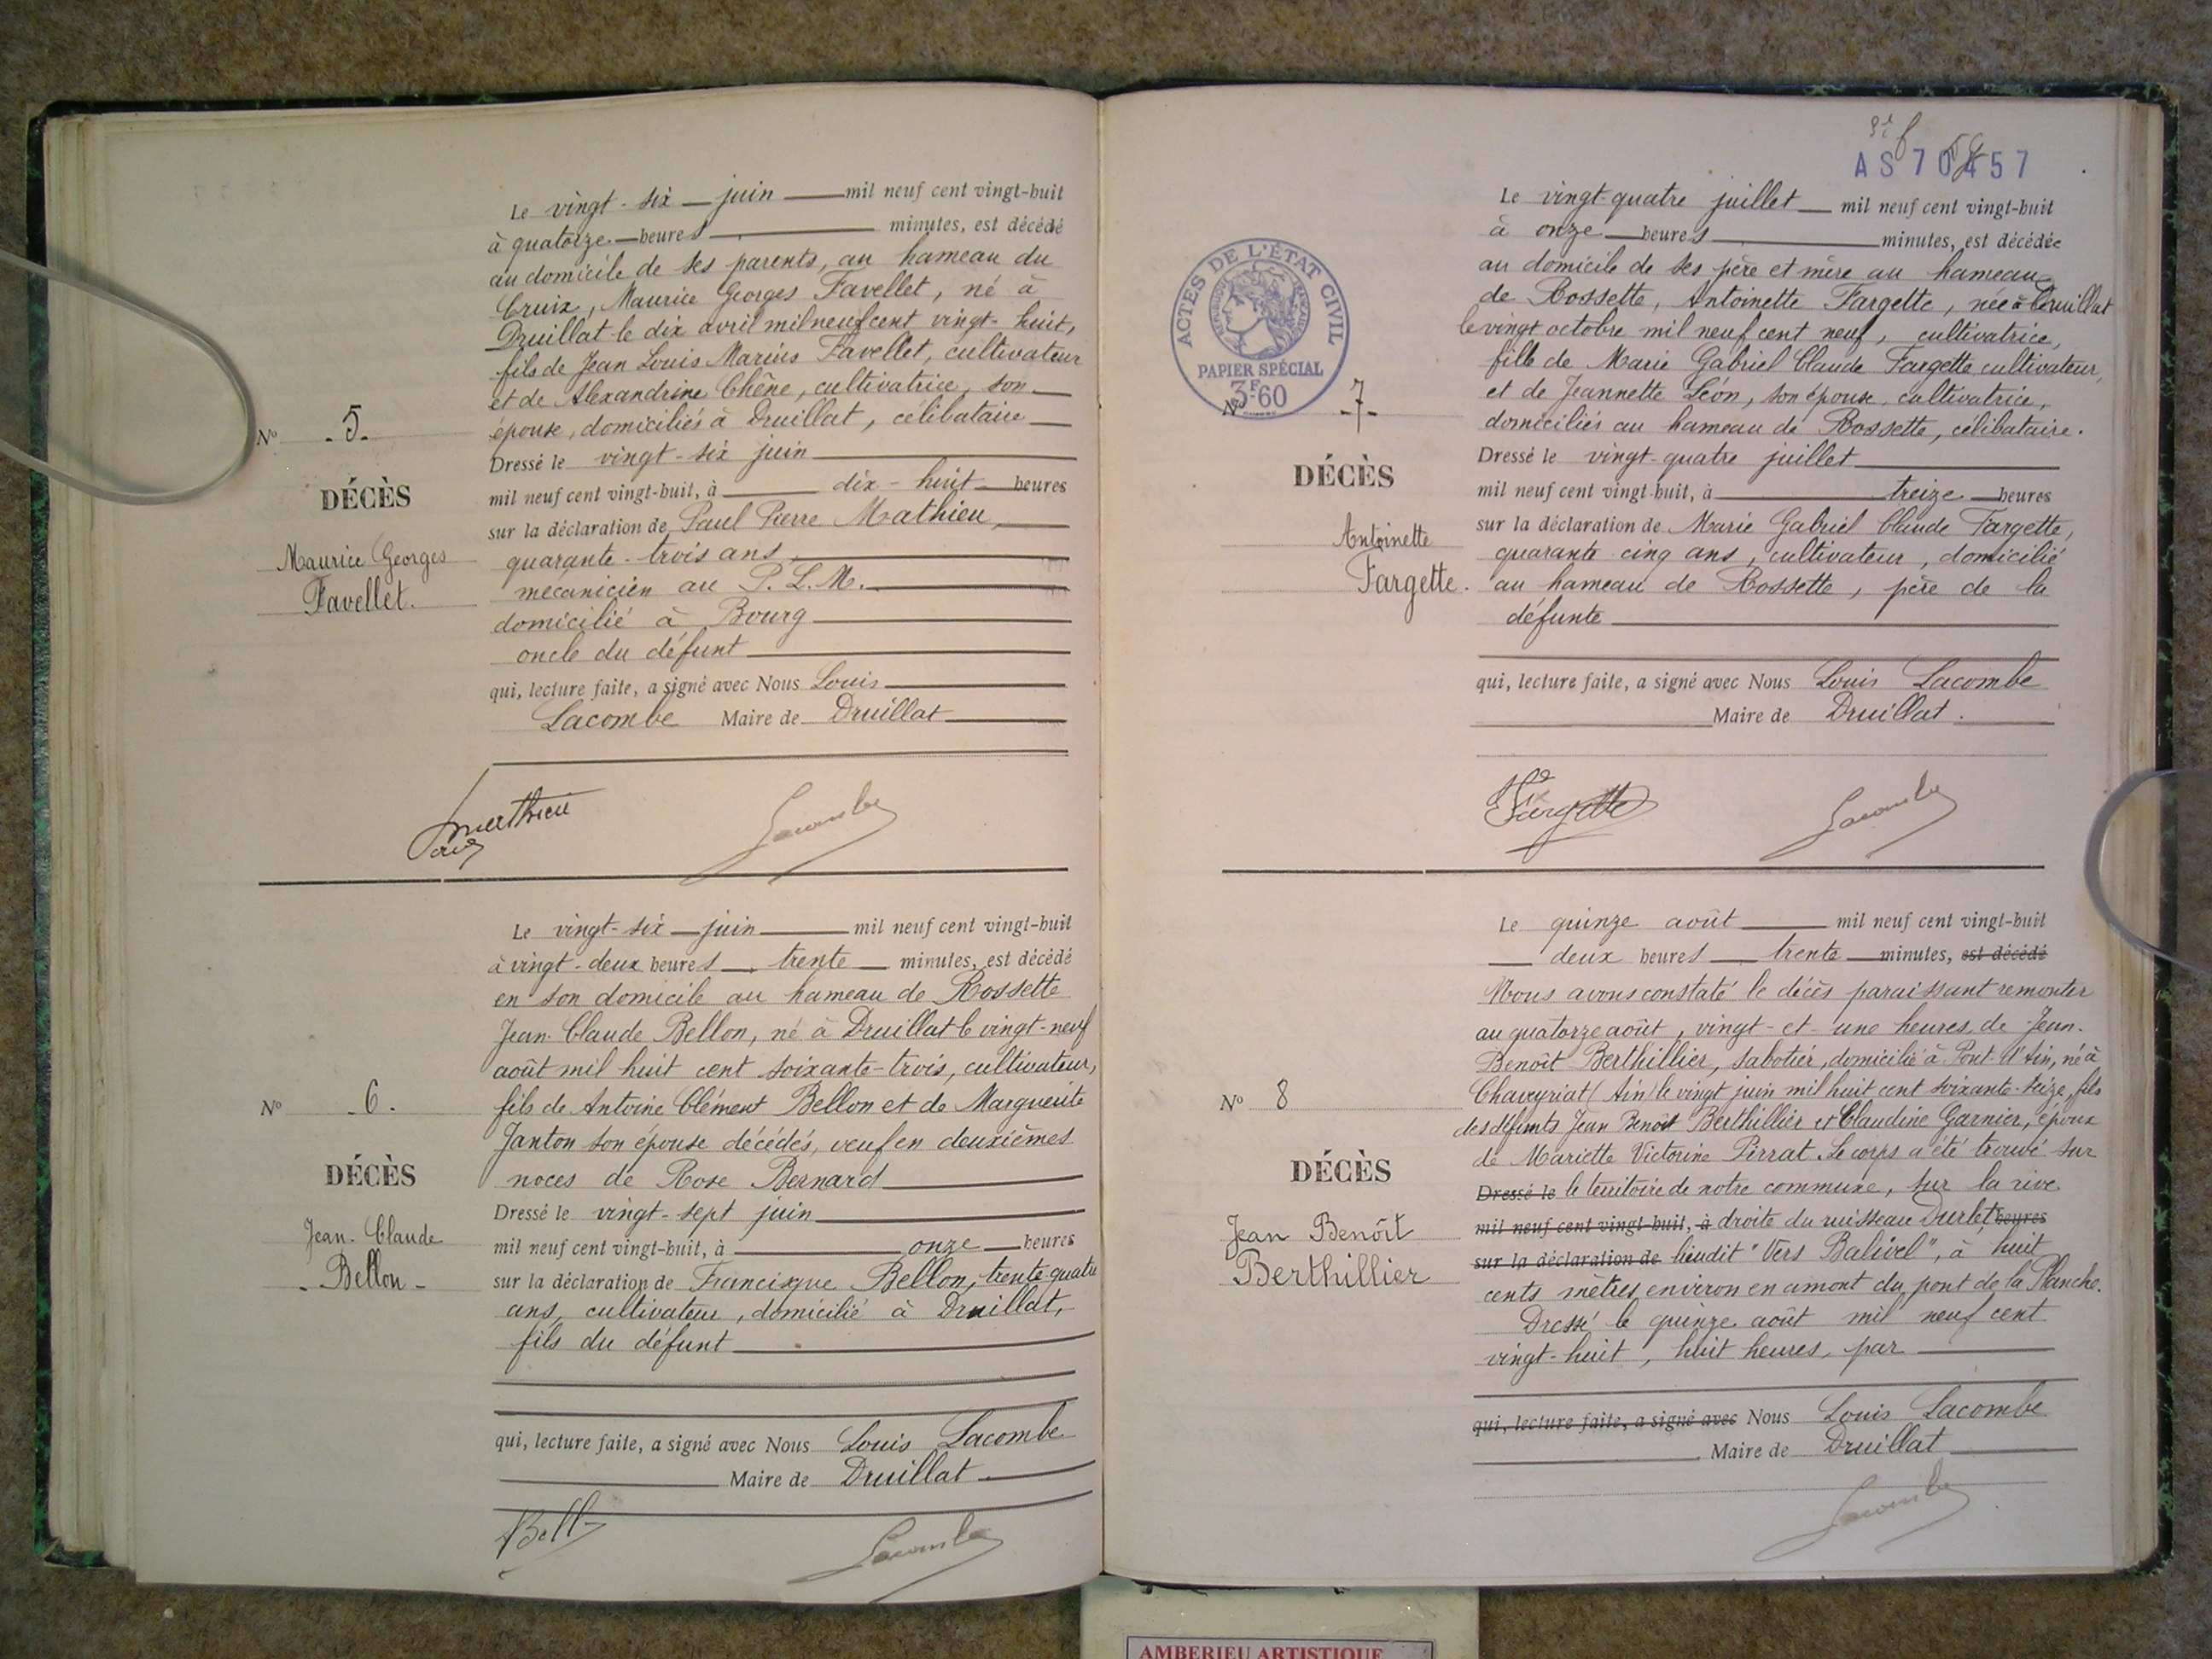 Le vingt-six juin mil neuf cent vingt-huit
à quatorze heures minutes, est décédé
au domicile de ses parents, au hameau du
Cruix, Maurice Georges Favellet, né à
Druillat le dix avril mil neuf cent vingt-huit,
fils de Jean Louis Marius Favellet, cultivateur
et de Alexandrine Chêne, cultivatrice, son
épouse, domiciliés à Druillat, célibataire
Dressé le vingt-six juin
mil neuf cent vingt-huit, à dix-huit heures
sur la déclaration de Paul Pierre Mathieu,
quarante-trois ans,
mécanicien au P.L.M.
domicilié à Bourg
oncle du défunt
qui, lecture faite, a signé avec Nous Louis
Lacombe Maire de Druillat
No 5.
DÉCÈS
Maurice Georges
Favellet.
Mathieu
Lacombe
Le vingt-six juin mil neuf cent vingt-huit
à vingt-deux heures trente minutes, est décédé
en son domicile au hameau de Rossette
Jean-Claude Bellon, né à Druillat le vingt-neuf
août mil huit cent soixante-trois, cultivateur,
fils de Antoine Clément Bellon et de Marguerite
Janton son épouse décédés, veuf en deuxièmes
noces de Rose Bernard
Dressé le vingt-sept juin
mil neuf cent vingt-huit, à onze heures
sur la déclaration de Francisque Bellon, trente-quatre
ans, cultivateur, domicilié à Druillat,
fils du défunt
qui, lecture faite, a signé avec Nous Louis Lacombe
Maire de Druillat
No 6.
DÉCÈS
Jean-Claude
Bellon
Lacombe
AS70457
ACTES DE L'ÉTAT CIVIL
RÉPUBLIQUE FRANÇAISE
PAPIER SPÉCIAL
3F60
Le vingt-quatre juillet mil neuf cent vingt-huit
à onze heures minutes, est décédée
au domicile de ses père et mère au hameau
de Rossette, Antoinette Fargette, née à Druillat
le vingt octobre mil neuf cent neuf, cultivatrice,
fille de Marie Gabriel Claude Fargette cultivateur,
et de Jeannette Léon, son épouse, cultivatrice,
domiciliés au hameau de Rossette, célibataire.
Dressé le vingt-quatre juillet
mil neuf cent vingt-huit, à treize heures
sur la déclaration de Marie Gabriel Claude Fargette,
quarante cinq ans, cultivateur, domicilié
au hameau de Rossette, père de la
défunte
qui, lecture faite, a signé avec Nous Louis Lacombe
Maire de Druillat.
No 7
DÉCÈS
Antoinette
Fargette.
Fargette
Lacombe
Le quinze août mil neuf cent vingt-huit
deux heures trente minutes, est décédé
Nous avons constaté le décès paraissant remonter
au quatorze août, vingt-et-une heures, de Jean-
Benoît Berthillier, sabotier, domicilié à Pont-d'Ain, né à
Chaveyriat (Ain) le vingt juin mil huit cent soixante-seize, fils
des défunts Jean Benoît Berthillier et Claudine Garnier, époux
de Mariette Victorine Pirrat. Le corps a été trouvé sur
Dressé le le territoire de notre commune, sur la rive
mil neuf cent vingt-huit, à droite du ruisseau Durlet heures
sur la déclaration de lieudit "Vers Balivel", à huit
cents mètres environ en amont du pont de la Planche.
Dressé le quinze août mil neuf cent
vingt-huit, huit heures, par
qui, lecture faite, a signé avec Nous Louis Lacombe
Maire de Druillat
No 8
DÉCÈS
Jean Benoît
Berthillier
Lacombe
AMBERIEU ARTISTIQUE